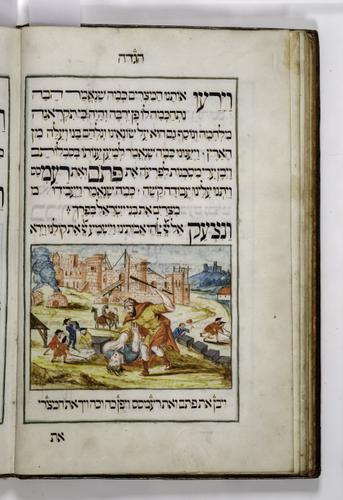 הגדה
וירעו אותנו המצרים כמה שנאמר הבה
נתחכמה לו פן ירבה והיה כי תקראנה
מלחמה ונוסף גם הוא על שונאינו ונלחם בנו ועלה מן
הארץ: ויענונו כמה שנאמר למען ענותו בסבלותם
ויבן ערי מסכנות לפרעה את פתם ואת רעמסס
ויתנו עלינו עבודה קשה: כמה שנאמר ויעבידו מ
מצרים את בני ישראל בפרך:
ונצעק אל ה אלהי אבותינו וישמע ה את קולנו וירא
ויבן את פתם ואת רעמסס ויפן כה וכה ויך את המצרי
את